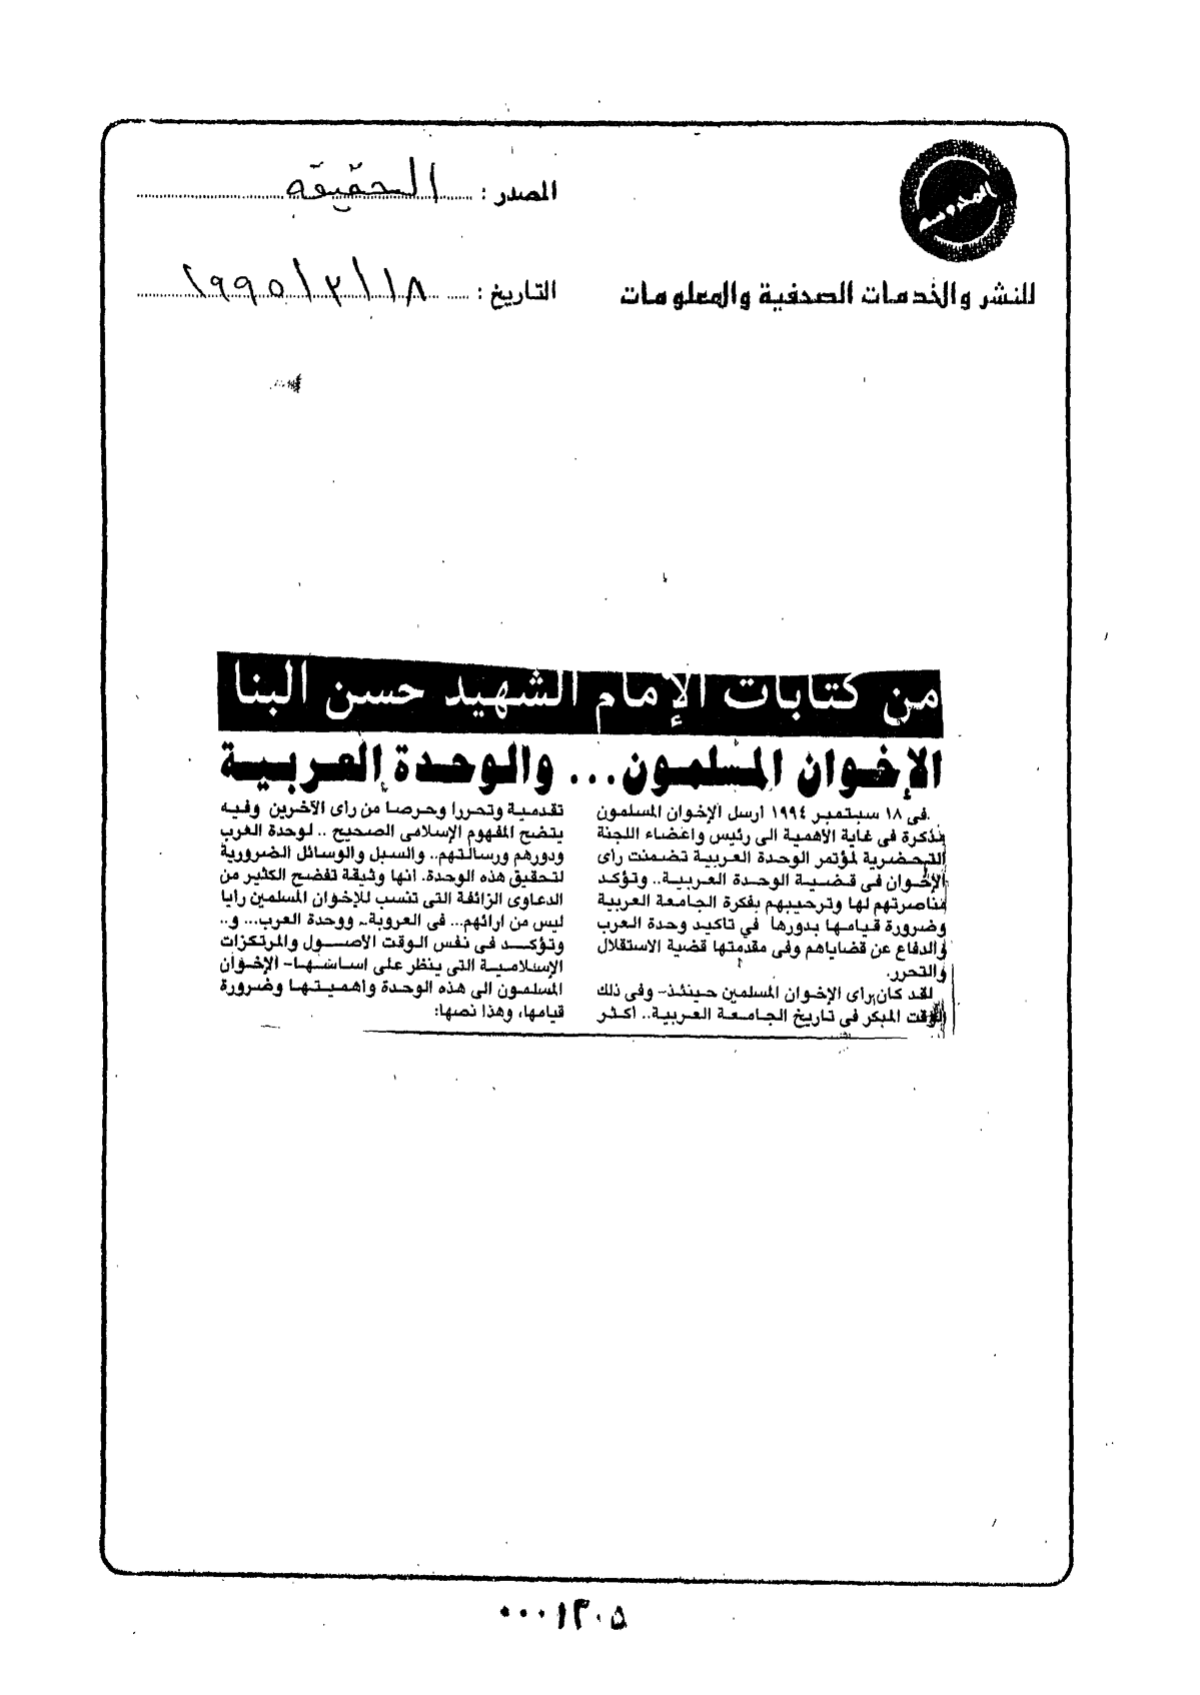 المصدر : الحقيقة
المدروسه
التاريخ : ١٩٩٥/٢/١٨
للنشر والخدمات الصحفية والمعلومات
من كتابات الإمام الشهيد حسن البنا
الإخوان المسلمون... والوحدة العربية
فى ١٨ سبتمبر ١٩٩٤ ارسل الإخوان المسلمون
مذكرة فى غاية الأهمية الى رئيس واعضاء اللجنة
التحضرية لمؤتمر الوحدة العربية تضمنت راى
الإخوان فى قضية الوحدة العربية.. وتؤكد
مناصرتهم لها وترحيبهم بفكرة الجامعة العربية
وضرورة قيامها بدورها فى تاكيد وحدة العرب
والدفاع عن قضاياهم وفى مقدمتها قضية الاستقلال
والتحرر.
لقد كان راى الإخوان المسلمين حينئذ- وفى ذلك
الوقت المبكر فى تاريخ الجامعة العربية.. اكثر
تقدمية وتحررا وحرصا من راى الآخرين وفيه
يتضح المفهوم الإسلامى الصحيح .. لوحدة العرب
ودورهم ورسالتهم.. والسبل والوسائل الضرورية
لتحقيق هذه الوحدة. انها وثيقة تفضح الكثير من
الدعاوى الزائفة التى تنسب للإخوان المسلمين رايا
ليس من ارائهم... فى العروبة.. ووحدة العرب... و..
وتؤكد فى نفس الوقت الأصول والمرتكزات
الإسلامية التى ينظر على اساسها- الإخوان
المسلمون الى هذه الوحدة واهميتها وضرورة
قيامها، وهذا نصها:
٠٠٠١٣٠٥